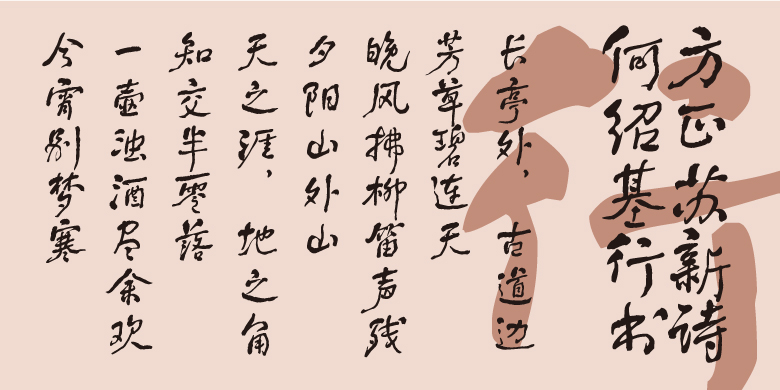 方正苏新诗
何绍基行书
长亭外，古道边
芳草碧连天
晚风拂柳笛声残
夕阳山外山
天之涯，地之角
知交半零落
一壶浊酒尽余欢
今宵别梦寒